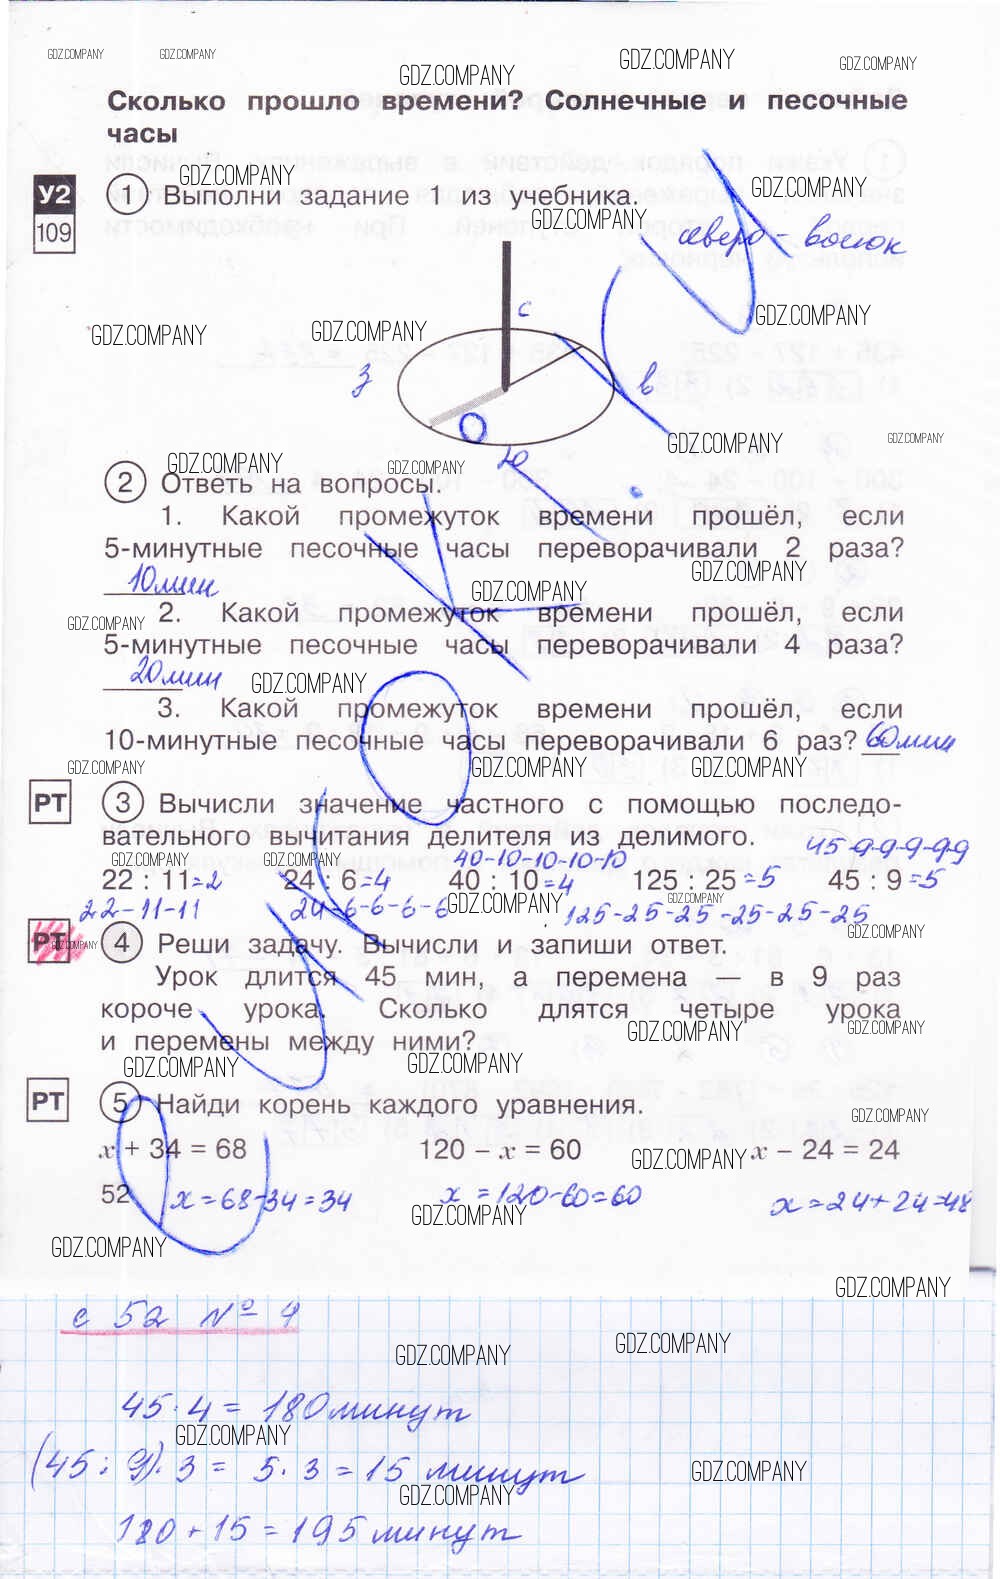 GDZ.COMPANY GDZ.COMPANY GDZ.COMPANY GDZ.COMPANY GDZ.COMPANY
Сколько прошло времени? Солнечные и песочные
часы
GDZ.COMPANY GDZ.COMPANY
У2 1 Выполни задание 1 из учебника.
109 GDZ.COMPANY
северо - восток
с
GDZ.COMPANY GDZ.COMPANY GDZ.COMPANY
з в
ю
GDZ.COMPANY GDZ.COMPANY
GDZ.COMPANY GDZ.COMPANY
2 Ответь на вопросы.
1. Какой промежуток времени прошёл, если
5-минутные песочные часы переворачивали 2 раза?
GDZ.COMPANY
10 мин GDZ.COMPANY
2. Какой промежуток времени прошёл, если
GDZ.COMPANY
5-минутные песочные часы переворачивали 4 раза?
20 мин GDZ.COMPANY
3. Какой промежуток времени прошёл, если
10-минутные песочные часы переворачивали 6 раз? 60 мин
GDZ.COMPANY GDZ.COMPANY GDZ.COMPANY
РТ 3 Вычисли значение частного с помощью последо-
вательного вычитания делителя из делимого.
45-9-9-9-9-9
GDZ.COMPANY GDZ.COMPANY 40-10-10-10-10
22 : 11=2 24 : 6=4 40 : 10=4 125 : 25=5 45 : 9=5
GDZ.COMPANY GDZ.COMPANY
22-11-11 24-6-6-6-6 125-25-25-25-25-25
GDZ.COMPANY
РТ GDZ.COMPANY 4 Реши задачу. Вычисли и запиши ответ.
Урок длится 45 мин, а перемена — в 9 раз
короче урока. Сколько длятся четыре урока
GDZ.COMPANY GDZ.COMPANY
и перемены между ними?
GDZ.COMPANY GDZ.COMPANY
РТ 5 Найди корень каждого уравнения.
GDZ.COMPANY
x + 34 = 68 120 − x = 60 x − 24 = 24
GDZ.COMPANY
52 x = 68-34=34 x = 120-60=60 x = 24+24=48
GDZ.COMPANY
GDZ.COMPANY
GDZ.COMPANY
с 52 № 4
GDZ.COMPANY GDZ.COMPANY
45·4 = 180 минут
GDZ.COMPANY
(45 : 9)·3 = 5·3 = 15 минут
GDZ.COMPANY GDZ.COMPANY
180 + 15 = 195 минут